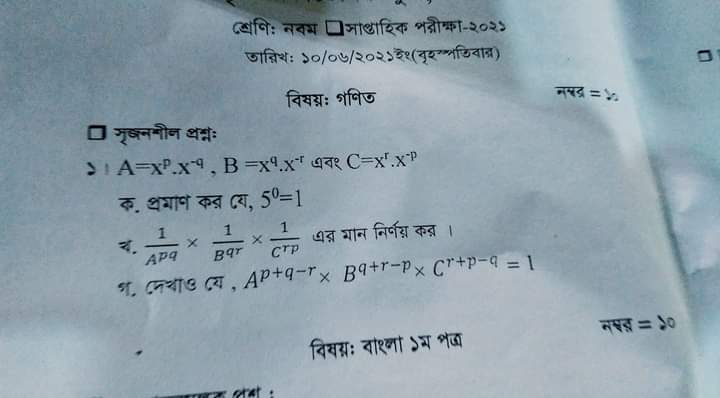 শ্রেণি: নবম □সাপ্তাহিক পরীক্ষা-২০২১
তারিখ: ১০/০৬/২০২১ইং(বৃহস্পতিবার)
বিষয়: গণিত
নম্বর = ১০
□ সৃজনশীল প্রশ্ন:
১। A=x^p.x^-q , B =x^q.x^-r এবং C=x^r.x^-p
ক. প্রমাণ কর যে, 5^0=1
খ. 1/A^pq × 1/B^qr × 1/C^rp এর মান নির্ণয় কর ।
গ. দেখাও যে , A^p+q-r × B^q+r-p × C^r+p-q = 1
নম্বর = ১০
বিষয়: বাংলা ১ম পত্র